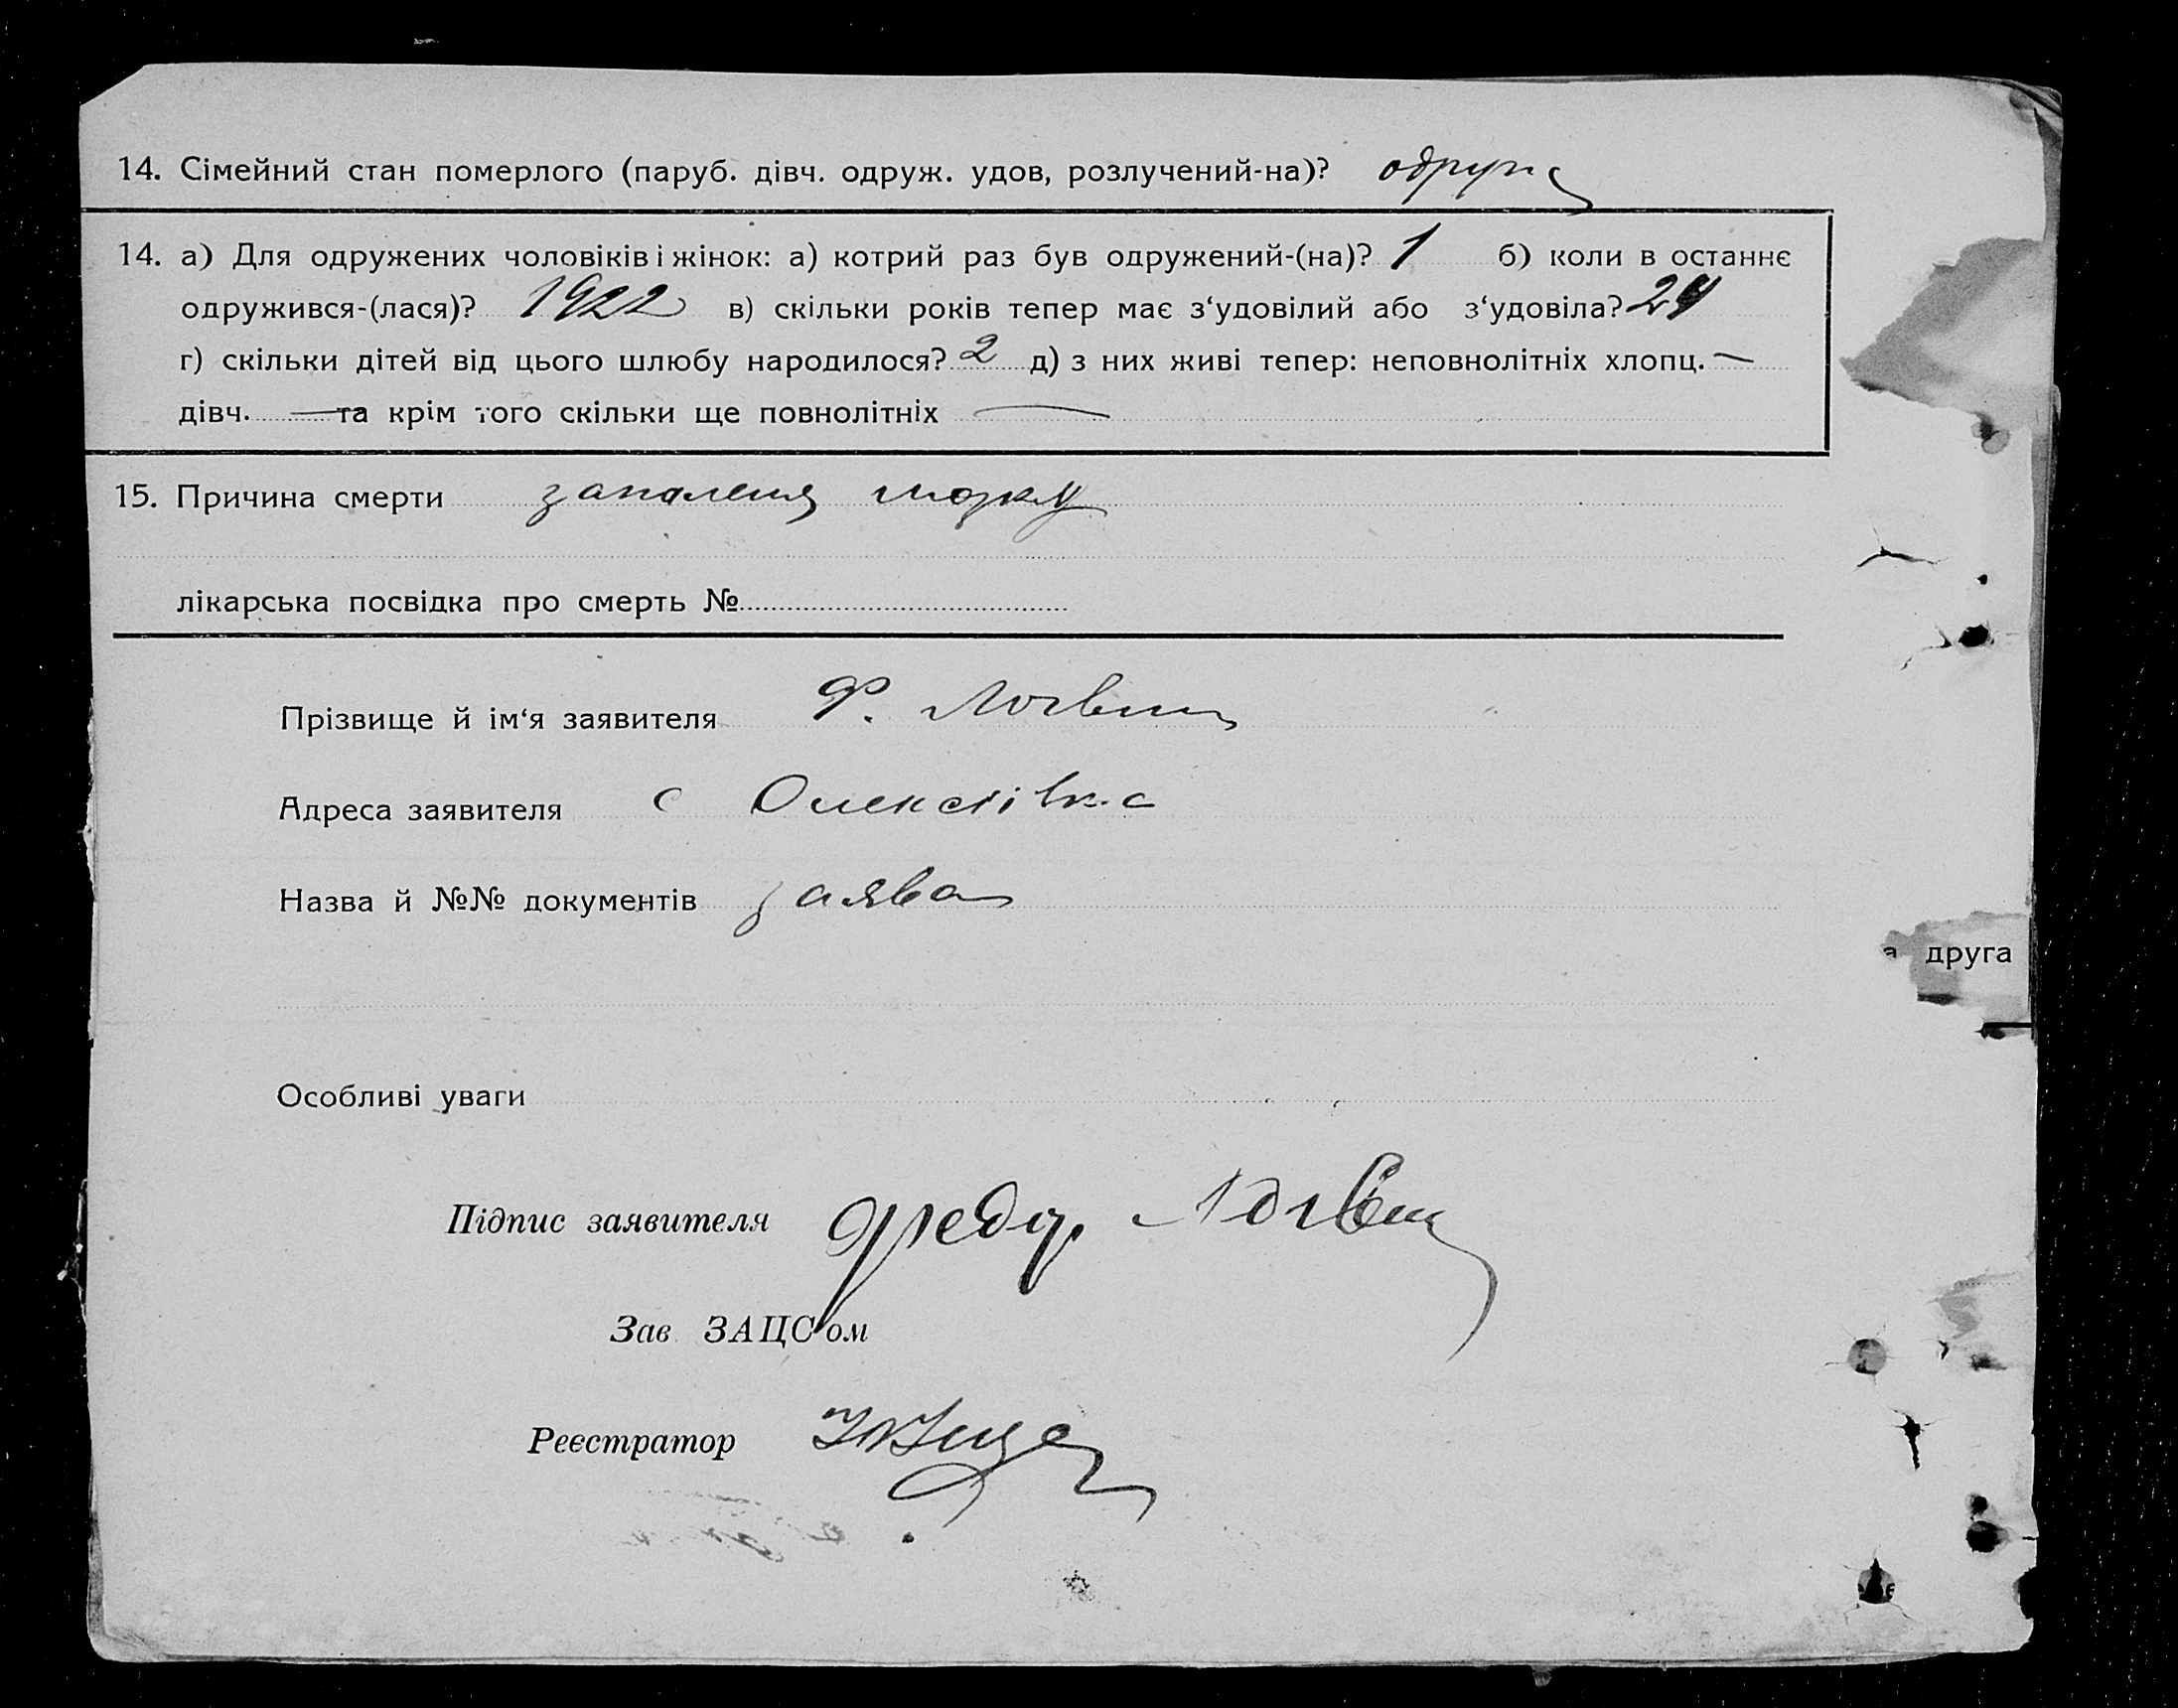 14. Сімейний стан померлого (паруб. дівч. одруж. удов, розлучений-на)?
14. а) Для одружених чоловіків і жінок: а) котрий раз був одружений-(на)? 1 б) коли в останнє
одружився-(лася)? 1922 в) скільки років тепер має з‘удовілий або з‘удовіла? 24
г) скільки дітей від цього шлюбу народилося? 2 д) з них живі тепер: неповнолітніх хлопц. —
дівч. — та крім того скільки ще повнолітніх —
15. Причина смерти запаленя мозку
лікарська посвідка про смерть №
Прізвище й ім‘я заявителя Ф. Логвин
Адреса заявителя с Олексіївка
Назва й №№ документів заява
друга
Особливі уваги
Підпис заявителя Федор Логвин
Зав ЗАЦС‘ом
Реєстратор